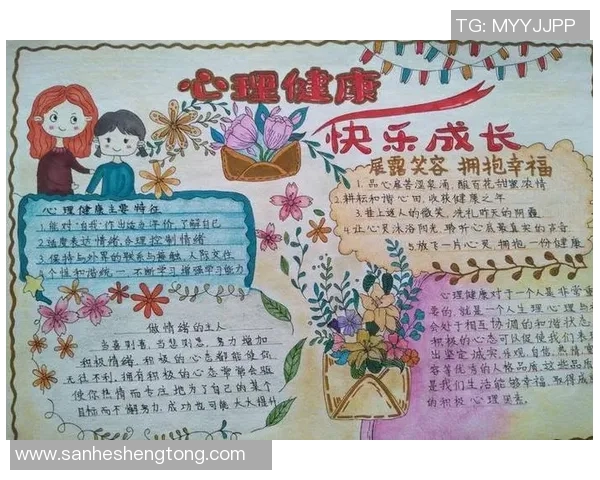 TG: MYYJJPP
心理健康
快乐成长
展露笑容 拥抱幸福
1.品心扉苦涩泉涌 酿百花甜蜜浓情
2.耕耘和谐心田,收获健康之年
3.巷上迷人的微笑,洗礼昨天的阴霾
4.让心灵沐浴阳光,聆听心底最真实的声音
5.放飞一片心灵,拥抱一份健康
心理健康主要特征
1.能对"自我"作出适当评价,了解自己
2.适度表达情绪,合理控制情绪
3.保持与外界的联系与接触,人际交往
4.个性和谐统一,不断学习,增强学习能力
做情绪的主人
当喜则喜,当悲则悲,努力增加
积极情绪,积极的心态都能使你
无往不利,拥有积极的心态常常会
使你热情而专注地为了自己的某个
目标而不懈努力,成功也可能大大提升
心理健康对于一个人是非常重
要的,就是一个人生理心理与社
会处于相互协调的和谐状态
积极的心态可以促使我们表
出坚定,诚实,乐观,自信,热情,宽
容等优秀的人格品质,这些品质
是我们生活能够幸福,取得成就
的积极心理因素.
www.sanheshengtong.com